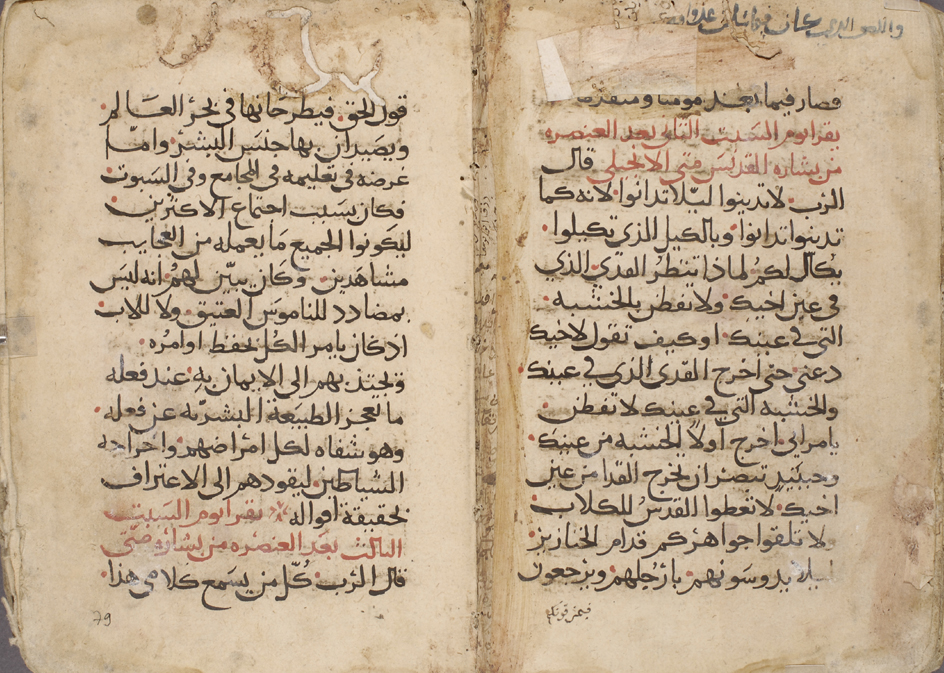 فصار فيما بعد مومنا
يقرا يوم السبت الثاني بعد العنصره
من بشاره القديس متى الانجيلي قال
الرب لا تدينوا ليلا تدانوا لانه كما
تدينوا تدانوا وبالكيل الذي تكيلوا
يكال لكم لماذا تنظر القذي الذي
في عين اخيك ولا تفطن بالخشبه
التي في عينك او كيف تقول لاخيك
دعني حتى اخرج القذي الذي في عينك
والخشبه التي في عينك لا تفطن
يامرايي اخرج اولا الخشبه من عينك
وحينيذ تبصر ان تخرج القذا من عين
اخيك لا تعطوا القدس للكلاب
ولا تلقوا جواهركم قدام الخنازير
ليلا يدوسونهم بارجلهم ويرجعون
فيمزقونكم
قول الحق فيطرحانها في بحر العالم
ويصيدان بها جنس البشر وامّا
غرضه في تعليمه في المجامع وفي السبوت
فكان بسبب اجتماع الاكثرين
ليكونوا الجميع ما يعمله من العجايب
مشاهدين وكان يبيّن لهم انه ليس
بمضادد للناموس العتيق ولا للاب
اذ كان يامر الكل بحفظ اوامره
ويجتذبهم الى الايمان به عند فعله
ما تعجز الطبيعة البشريه عن فعله
وهو شفاه لكل امراضهم واخراجه
الشياطين ليقودهم الى الاعتراف
بحقيقة اقواله يقرا يوم السبت
الثالث بعد العنصره من بشاره متى
قال الرب كل من يسمع كلامي هذا
79